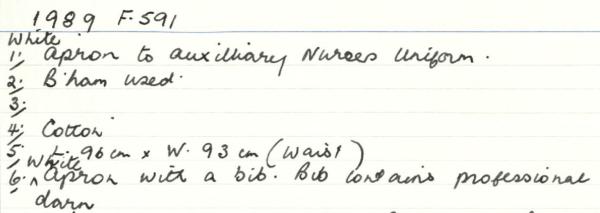 1989 F.591
White
1. Apron to auxilliary Nurses Uniform.
2. B'ham used.
3.
4. Cotton
5. L. 96 cm x W. 93 cm (waist)
White
6. ^ Apron with a bib. Bib contains professional
darn